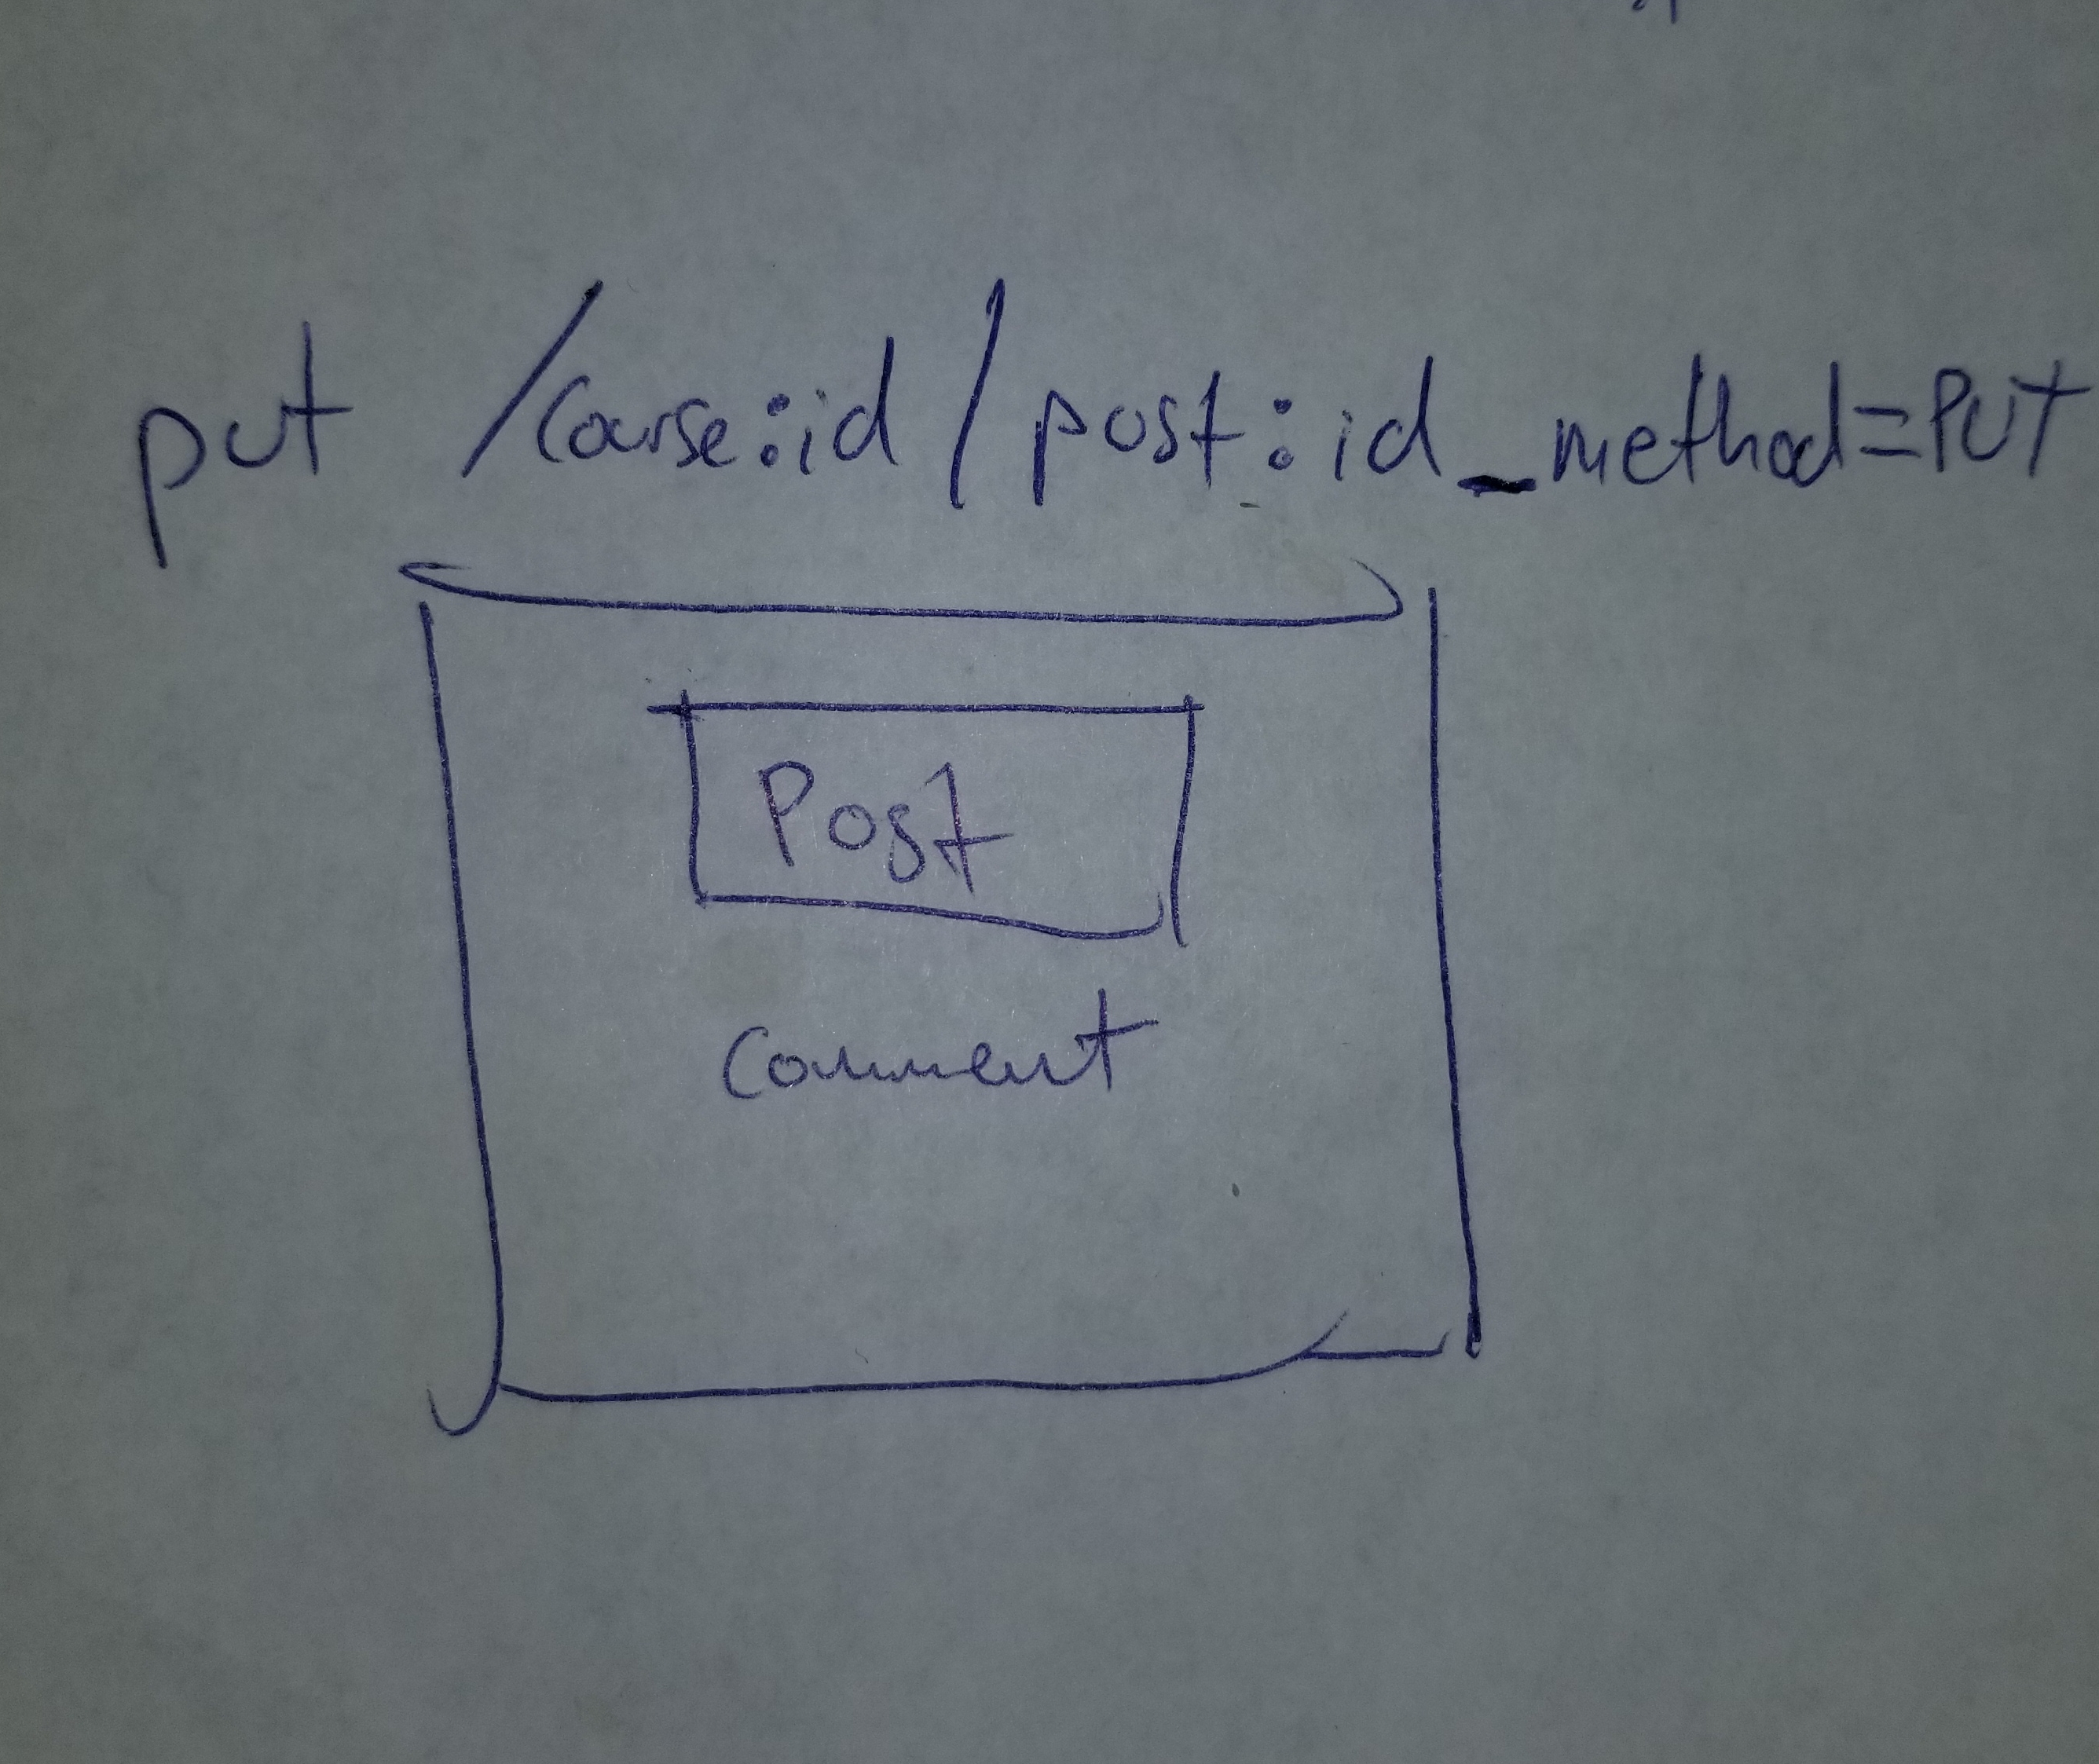 put /course:id/post:id_method=PUT
Post
comment